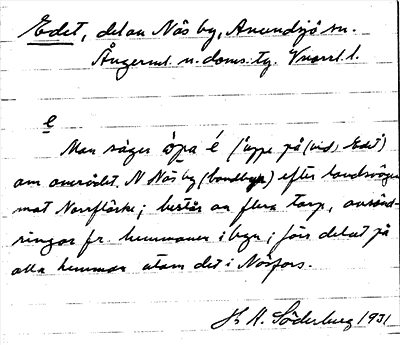 Edet, del av Näs by, Anundsjö sn.
Ångerml. n. doms. tg. Vnorrl. l.
e
Man säger òpa é (uppe på (vid) Edet)
om området N Näs by (bondbyn) efter landsvägen
mot Norrflärke; består av flera torp, avsönd-
ringar fr. hemmanen i byn; förs delat på
alla hemman utom det i Näsfors.
H. A. Söderberg 1931